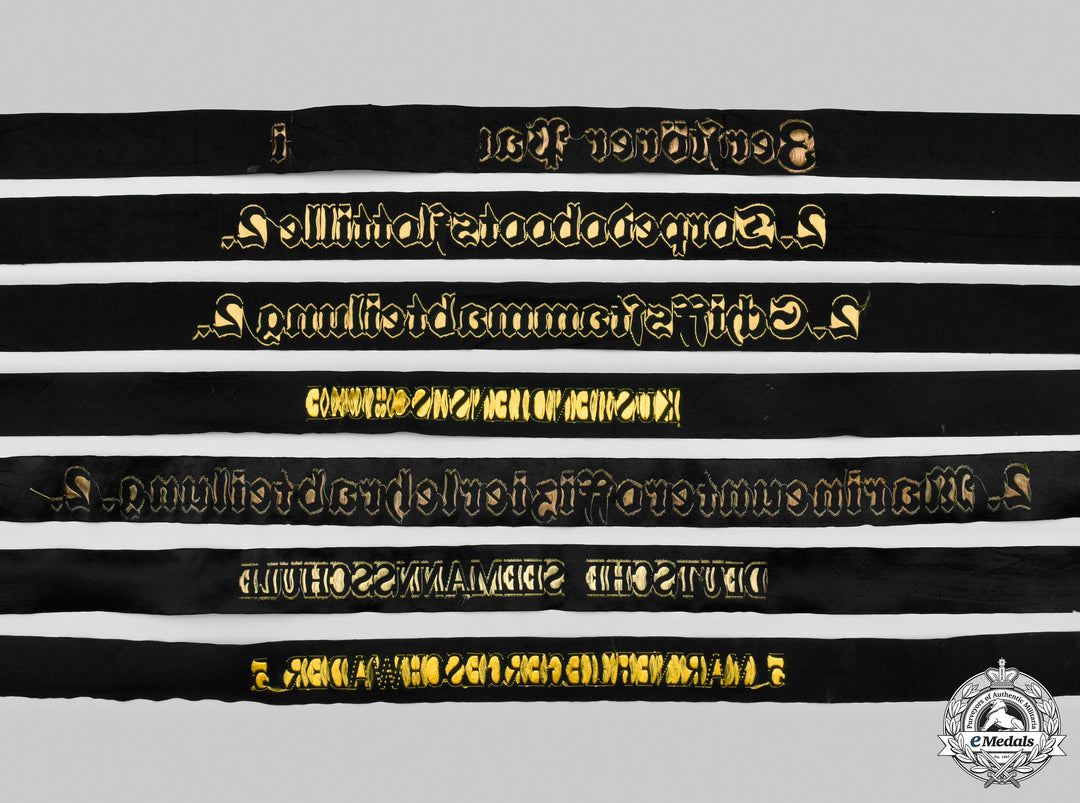 Zerſtörer
2. Torpedobootsflottille 2.
2. Schiffsſtammabteilung 2.
2. Marineunteroffizierlehrabteilung. 2.
DEUTSCHE SEEMANNSSCHULE
5. MARINEFLIEGERGESCHWADER 5.
Purveyors of Authentic Militaria
eMedals